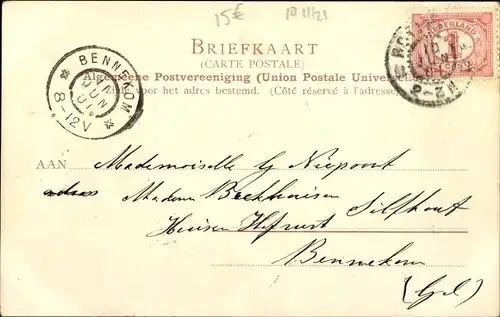 15€
10 11/21
BRIEFKAART
(CARTE POSTALE)
Algemeene Postvereeniging (Union Postale Universelle)
Zijde voor het adres bestemd. (Côté réservé à l'adresse)
BENNEKOM
JUN
01
8-12V
NEDERLAND
1
CENT
10
JUN
AAN Mademoiselle G Nieport
adres Madame Beckhuisen
Huize Silfhout
Bennekom
(Gel)